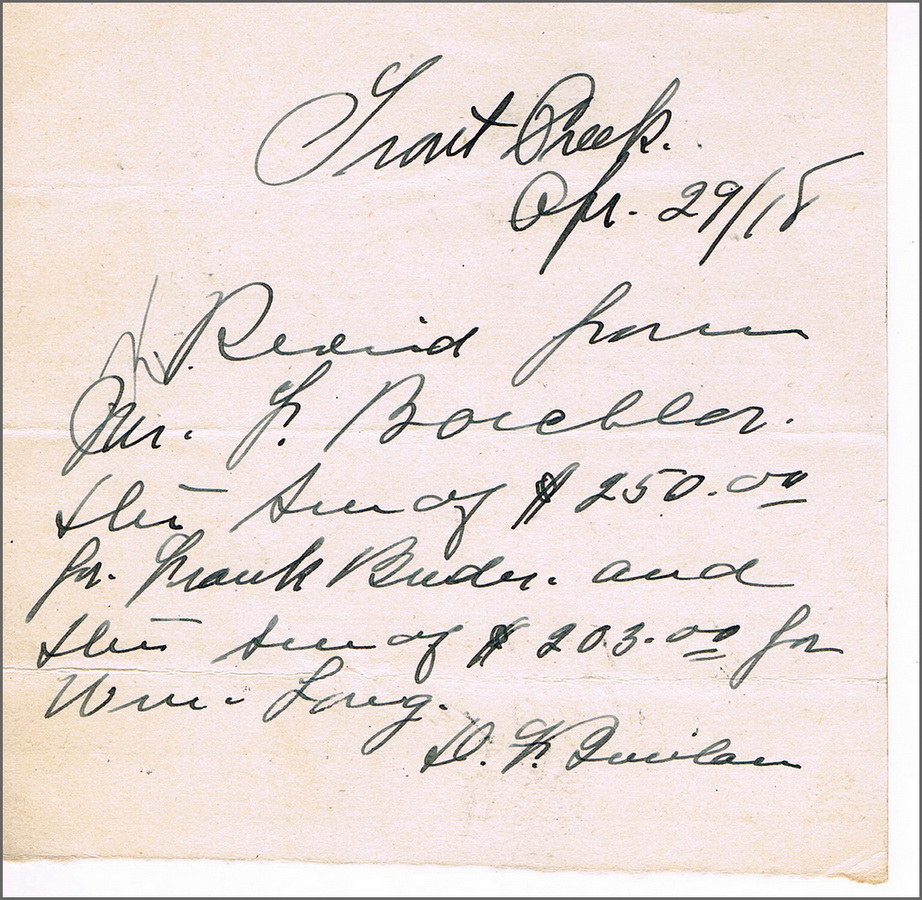 Trout Creek.
Apr. 29/18
Recvid from
Mr. F.
the sum of $250.00
for Frank Buder. and
the sum of $203.00 for
Wm. Long.
D. F.